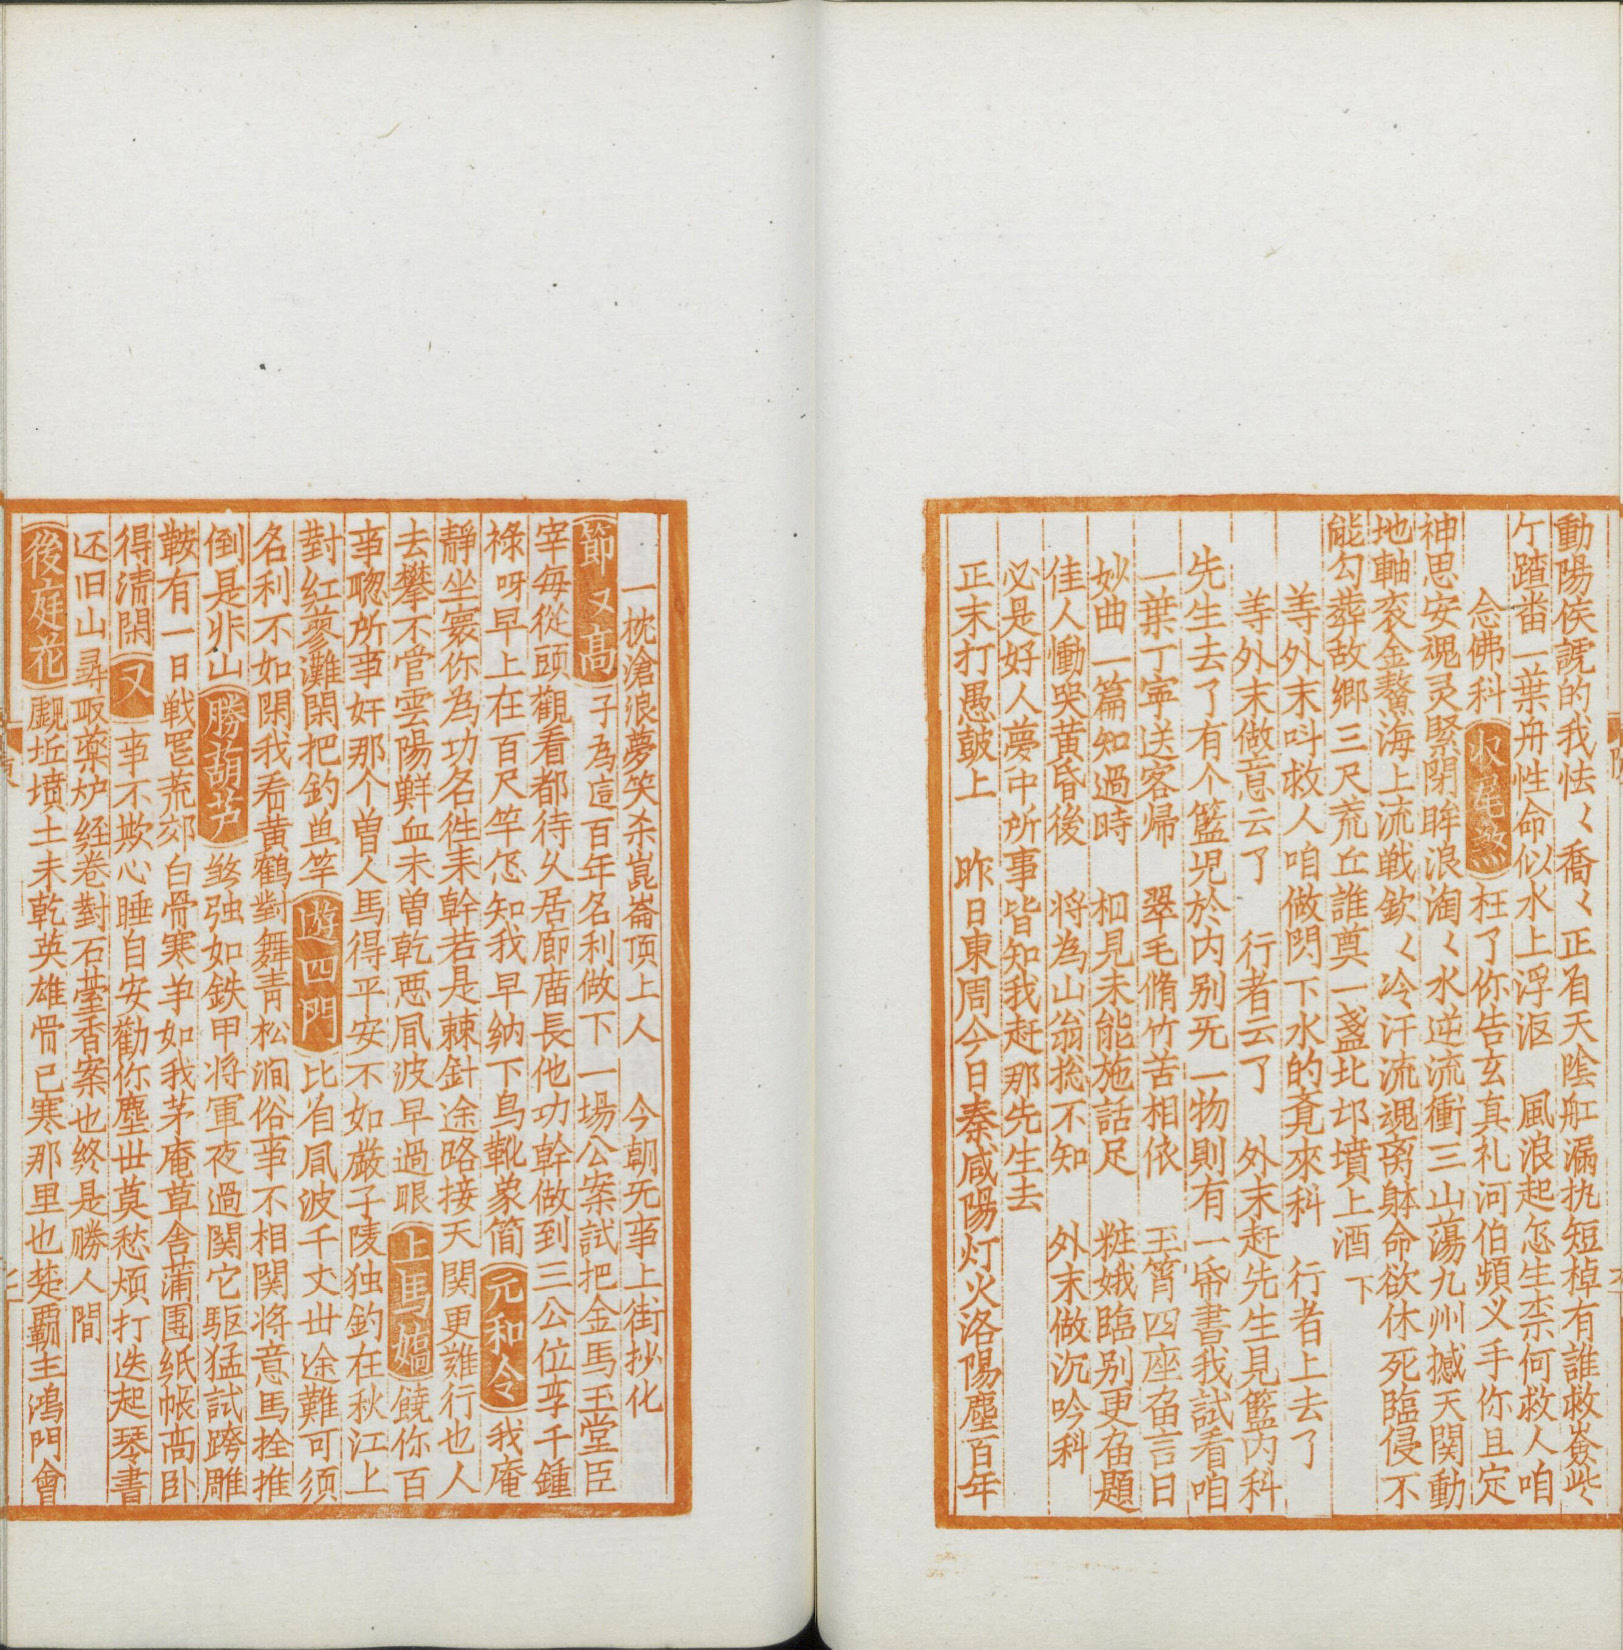 動陽侯諕的我怯〻喬〻正有天隂舡漏执短棹有誰救僉些
亍蹅畨一葉舟性命似水上浮沤　風浪起怎生柰何救人咱
念佛科 收尾煞 枉了你告玄真礼河伯頻义手你且定
神思安魂灵緊閉眸浪淘〻水逆流衝三山蕩九州撼天関動
地軸衮金鰲海上流戦欽〻冷汗流魂离躰命欲休死臨侵不
能勾葬故郷三尺荒丘誰奠一盞北邙墳上酒　下
等外末呌救人咱做閃下水的竟來科　行者上去了
等外末做意云了　行者云了　外末赶先生見籃内科
先生去了有个籃児於内别旡一物則有一帋書我試看咱
一葉丁寕送客帰　翠毛脩竹苦相依　玉筲四座畄言日
妙曲一篇知過時　相見未能施話足　粧娥臨别更畄題
佳人慟哭黄昏後　将為山翁捴不知　外末做沉吟科
必是好人夢中所事皆知我赶那先生去
正末打愚皷上　昨日東周今日秦咸陽灯火洛陽塵百年
一枕滄浪夢笑杀崑崙顶上人　今朝旡事上街抄化
節又髙 子為這百年名利做下一場公案試把金馬玉堂臣
宰每從頭觀看都待久居廊庿長他功幹做到三公位享千鍾
祿呀早上在百尺竿怎知我早纳下烏靴象简 元和令 我庵
靜坐寰你為功名徃耒幹若是棘針途路接天関更難行也人
去攀不管雲陽鮮血未曽乾恶凨波早過眼 上馬嬌 饒你百
事聦所事奸那个曽人馬得平安不如嚴子陵独釣在秋江上
對紅蓼灘閑把釣魚竿 遊四門 比自凨波千丈丗途難可须
名利不如閑我看黄鹤對舞青松澗俗事不相関将意馬拴推
倒是非山 勝葫芦 煞强如鉄甲将軍夜過関它駆猛試跨雕
鞍有一日戦罷荒郊白骨寒争如我茅庵草舎蒲團紙帳髙卧
得清閑 又 事不欺心睡自安勸你塵丗莫愁煩打迭起琴書
还旧山尋取藥炉经卷對石䑓香案也终是勝人間
後庭花 觑坵墳土未乾英雄骨已寒那里也楚霸主鴻門會